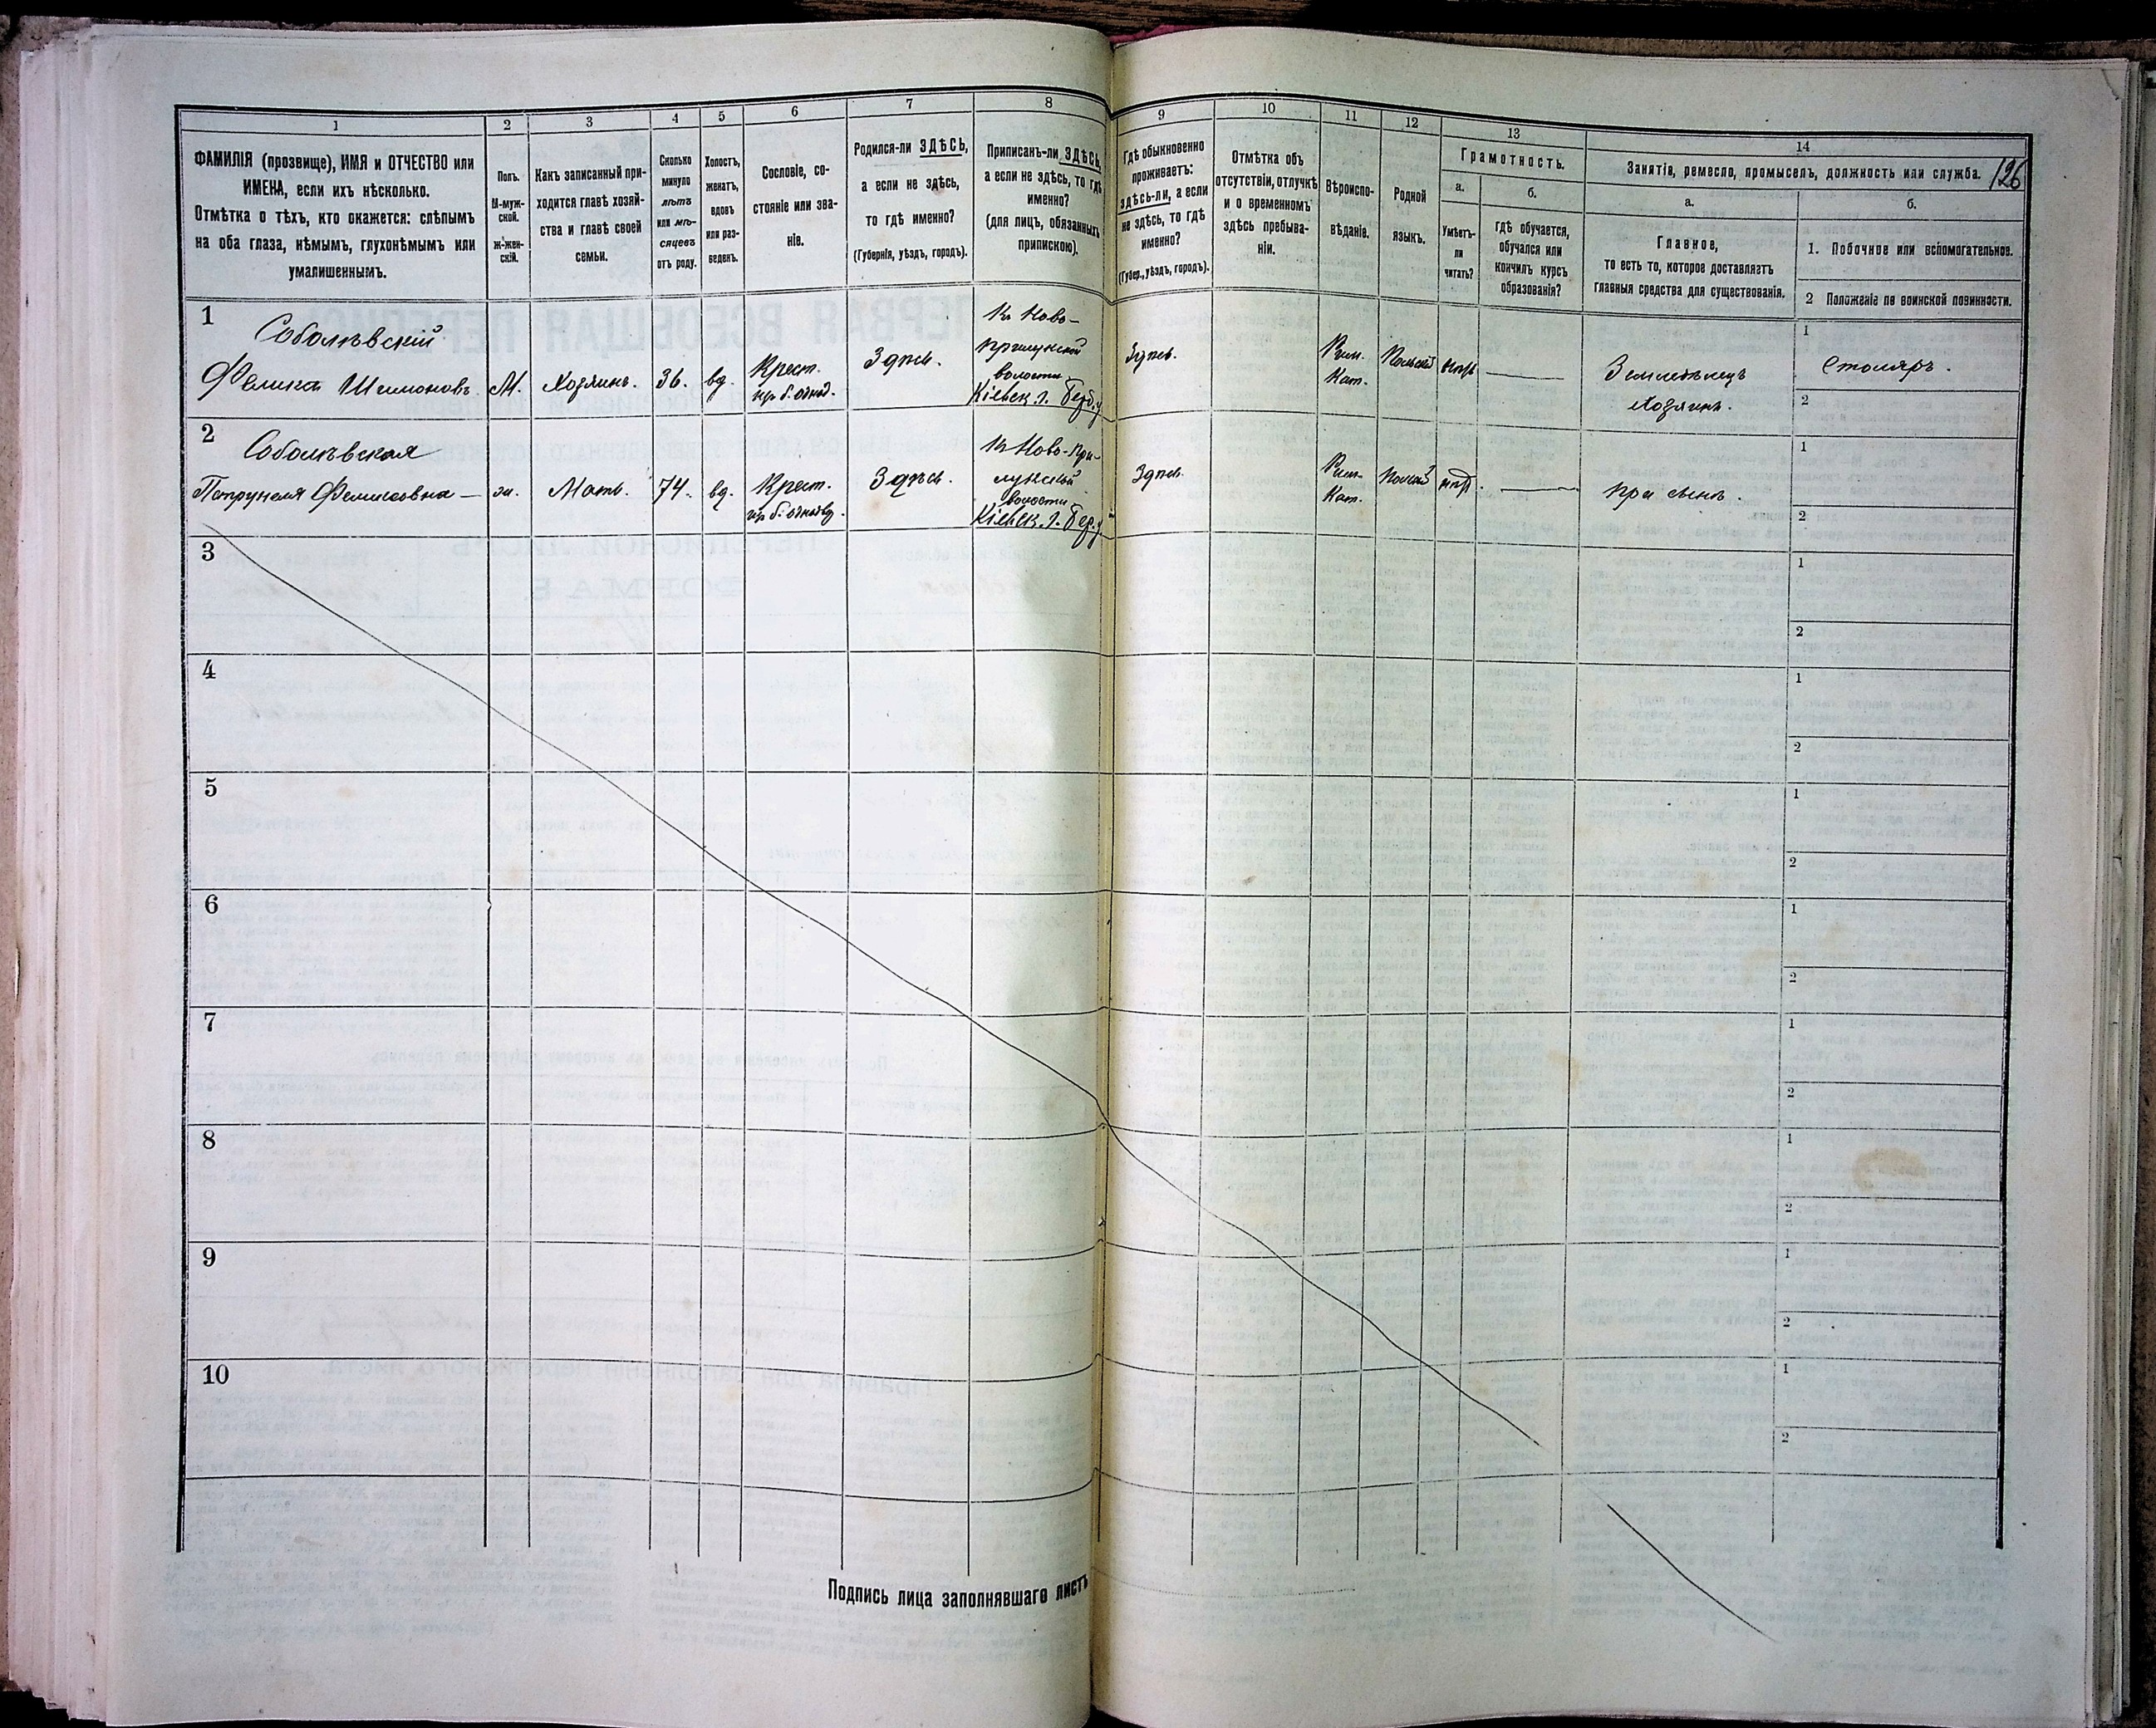 1
2
3
4
5
6
7
8
9
10
11
12
13
14
126
ФАМИЛІЯ (прозвище), ИМЯ и ОТЧЕСТВО или
ИМЕНА, если ихъ нѣсколько.
Отмѣтка о тѣхъ, кто окажется: слѣпымъ
на оба глаза, нѣмымъ, глухонѣмымъ или
умалишеннымъ.
Полъ.
М-муж-
ской.
ж-жен-
скій.
Какъ записанный при-
ходится главѣ хозяй-
ства и главѣ своей
семьи.
Сколько
минуло
лѣтъ
или мѣ-
сяцевъ
отъ роду.
Холостъ,
женатъ,
вдовъ
или раз-
веденъ.
Сословіе, со-
стояніе или зва-
ніе.
Родился-ли ЗДѢСЬ,
а если не здѣсь,
то гдѣ именно?
(Губернія, уѣздъ, городъ).
Приписанъ-ли ЗДѢСЬ,
а если не здѣсь, то гдѣ
именно?
(для лицъ, обязанныхъ
припискою).
Гдѣ обыкновенно
проживаетъ:
здѣсь-ли, а если
не здѣсь, то гдѣ
именно?
(Губер., уѣздъ, городъ).
Отмѣтка объ
отсутствіи, отлучкѣ
и о временномъ
здѣсь пребыва-
ніи.
Вѣроиспо-
вѣданіе.
Родной
языкъ.
Грамотность.
а.
Умѣетъ-
ли
читать?
б.
гдѣ обучается,
обучался или
кончилъ курсъ
образованія?
Занятіе, ремесло, промыселъ, должность или служба.
а.
Главное,
то есть то, которое доставляетъ
главныя средства для существованія.
б.
1. Побочное или вспомогательное.
2 Положеніе по воинской повинности.
1
Соболѣвскій
Феликсъ Шимоновъ
М.
Хозяинъ.
36.
вд.
Крест.
Здѣсь.
Къ Ново-
прилукской
волости
Кіевск. г. Берд. у
Здѣсь.
Рим.
Кат.
Польскій
Земледѣлецъ
хозяинъ.
1
Столяръ.
2
2
Соболѣвская
Петрунеля Феликсовна —
ж.
Мать.
74.
вд.
Крест.
Здѣсь.
Къ Ново-при-
лукской
волости
Кіевск. г. Бер. у
Здѣсь.
Рим.
Кат.
при сынѣ.
1
2
3
1
2
4
1
2
5
1
2
6
1
2
7
1
2
8
1
2
9
1
2
10
1
2
Подпись лица заполнявшаго листъ